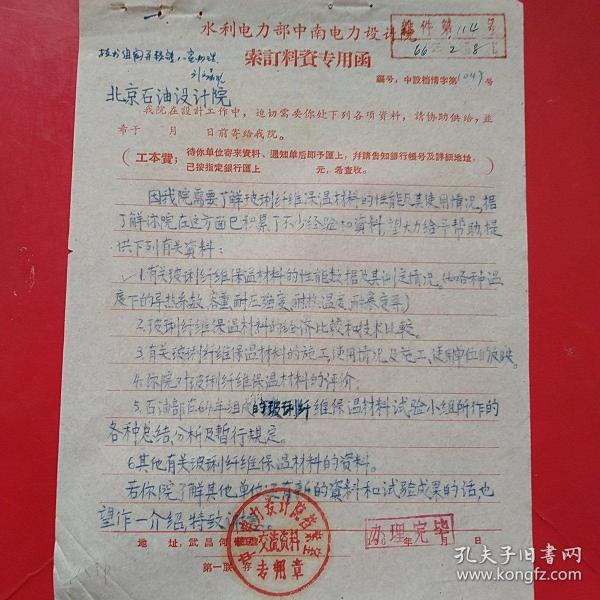 水利电力部中南电力设计院
索訂料資专用函
件第114号
66 2 8
編号：中設档情字第1049号
北京石油设计院
我院在設計工作中，迫切需要你处下列各項資料，請协助供給，並
希于 月 日前寄給我院。
（工本費：待你单位寄来資料、通知单后即予匯上，幷請告知銀行帳号及詳細地址，
已按指定銀行匯上 元，希查收。）
因我院需要了解玻琍纤维保温材料的性能及其使用情况，据
了解你院在这方面已积累了不少经验和资料，望大力给予帮助，提
供下列有关资料：
1.有关玻琍纤维保温材料的性能数据及其测定情况，(如各种温
度下的导热系数、容重、耐压强度、耐热温度、耐寒度等)
2.玻琍纤维保温材料的经济比较和技术比较。
3.有关玻琍纤维保温材料的施工，使用情况及施工、使用单位的反映。
4.你院对玻琍纤维保温材料的评价。
5.石油部在64年组成的玻琍纤维保温材料试验小组所作的
各种总结，分析及暂行规定。
6.其他有关玻琍纤维保温材料的资料。
若你院了解其他单位还有新的资料和试验成果的话，也
望作一介绍，特致
地 址，武昌何
办理完毕
年 月 日
交流资料
专用章
第一联
孔夫子旧书网
www.kongfz.com